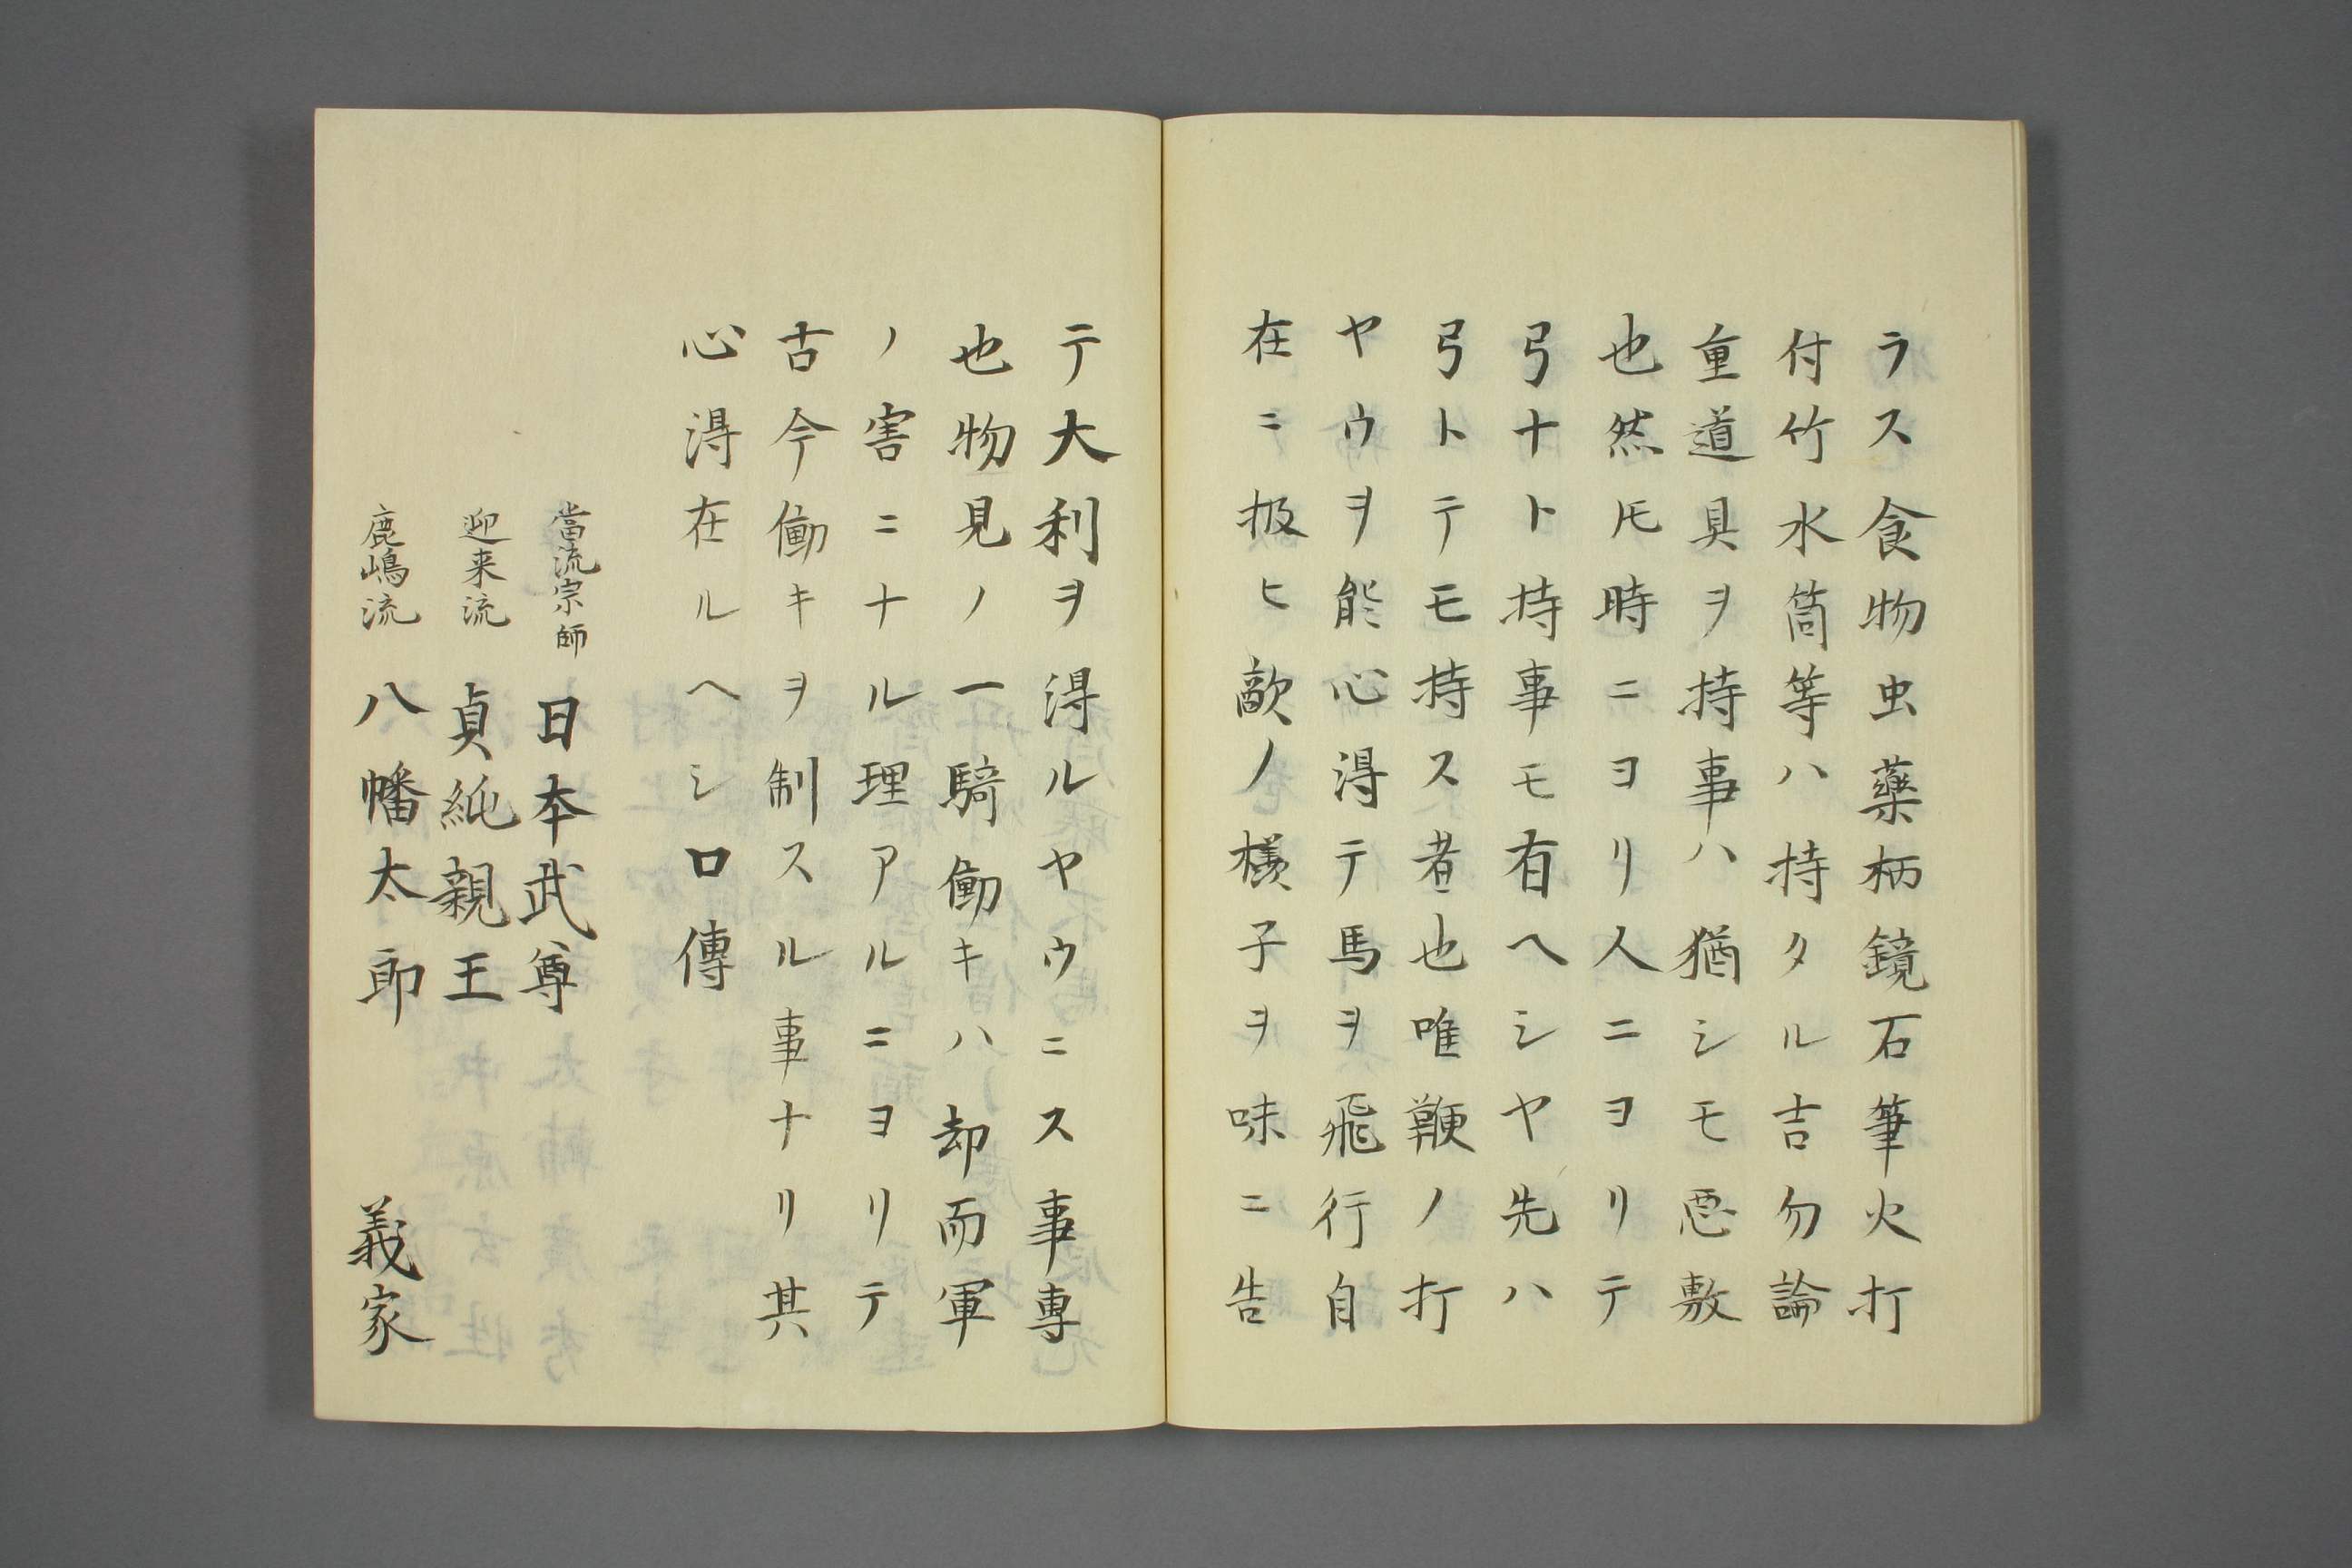 ラス食物虫薬柄鏡石筆火打
付竹水筒等ハ持タル吉勿論
重道具ヲ持事ハ猶シモ悪敷
也然𪜈時ニヨリ人ニヨリテ
弓ナト持事モ有ヘシヤ先ハ
弓トテモ持ス者也唯鞭ノ打
ヤウヲ能心得テ馬ヲ飛行自
在ニ扱ヒ敵ノ様子ヲ味ニ告
テ大利ヲ得ルヤウニス事専
也物見ノ一騎働キハ却而軍
ノ害ニナル理アルニヨリテ
古今働キヲ制スル事ナリ其
心得在ルヘシ口傳
當流宗師 日本武尊
迎来流 貞純親王
鹿嶋流 八幡太郎 義家